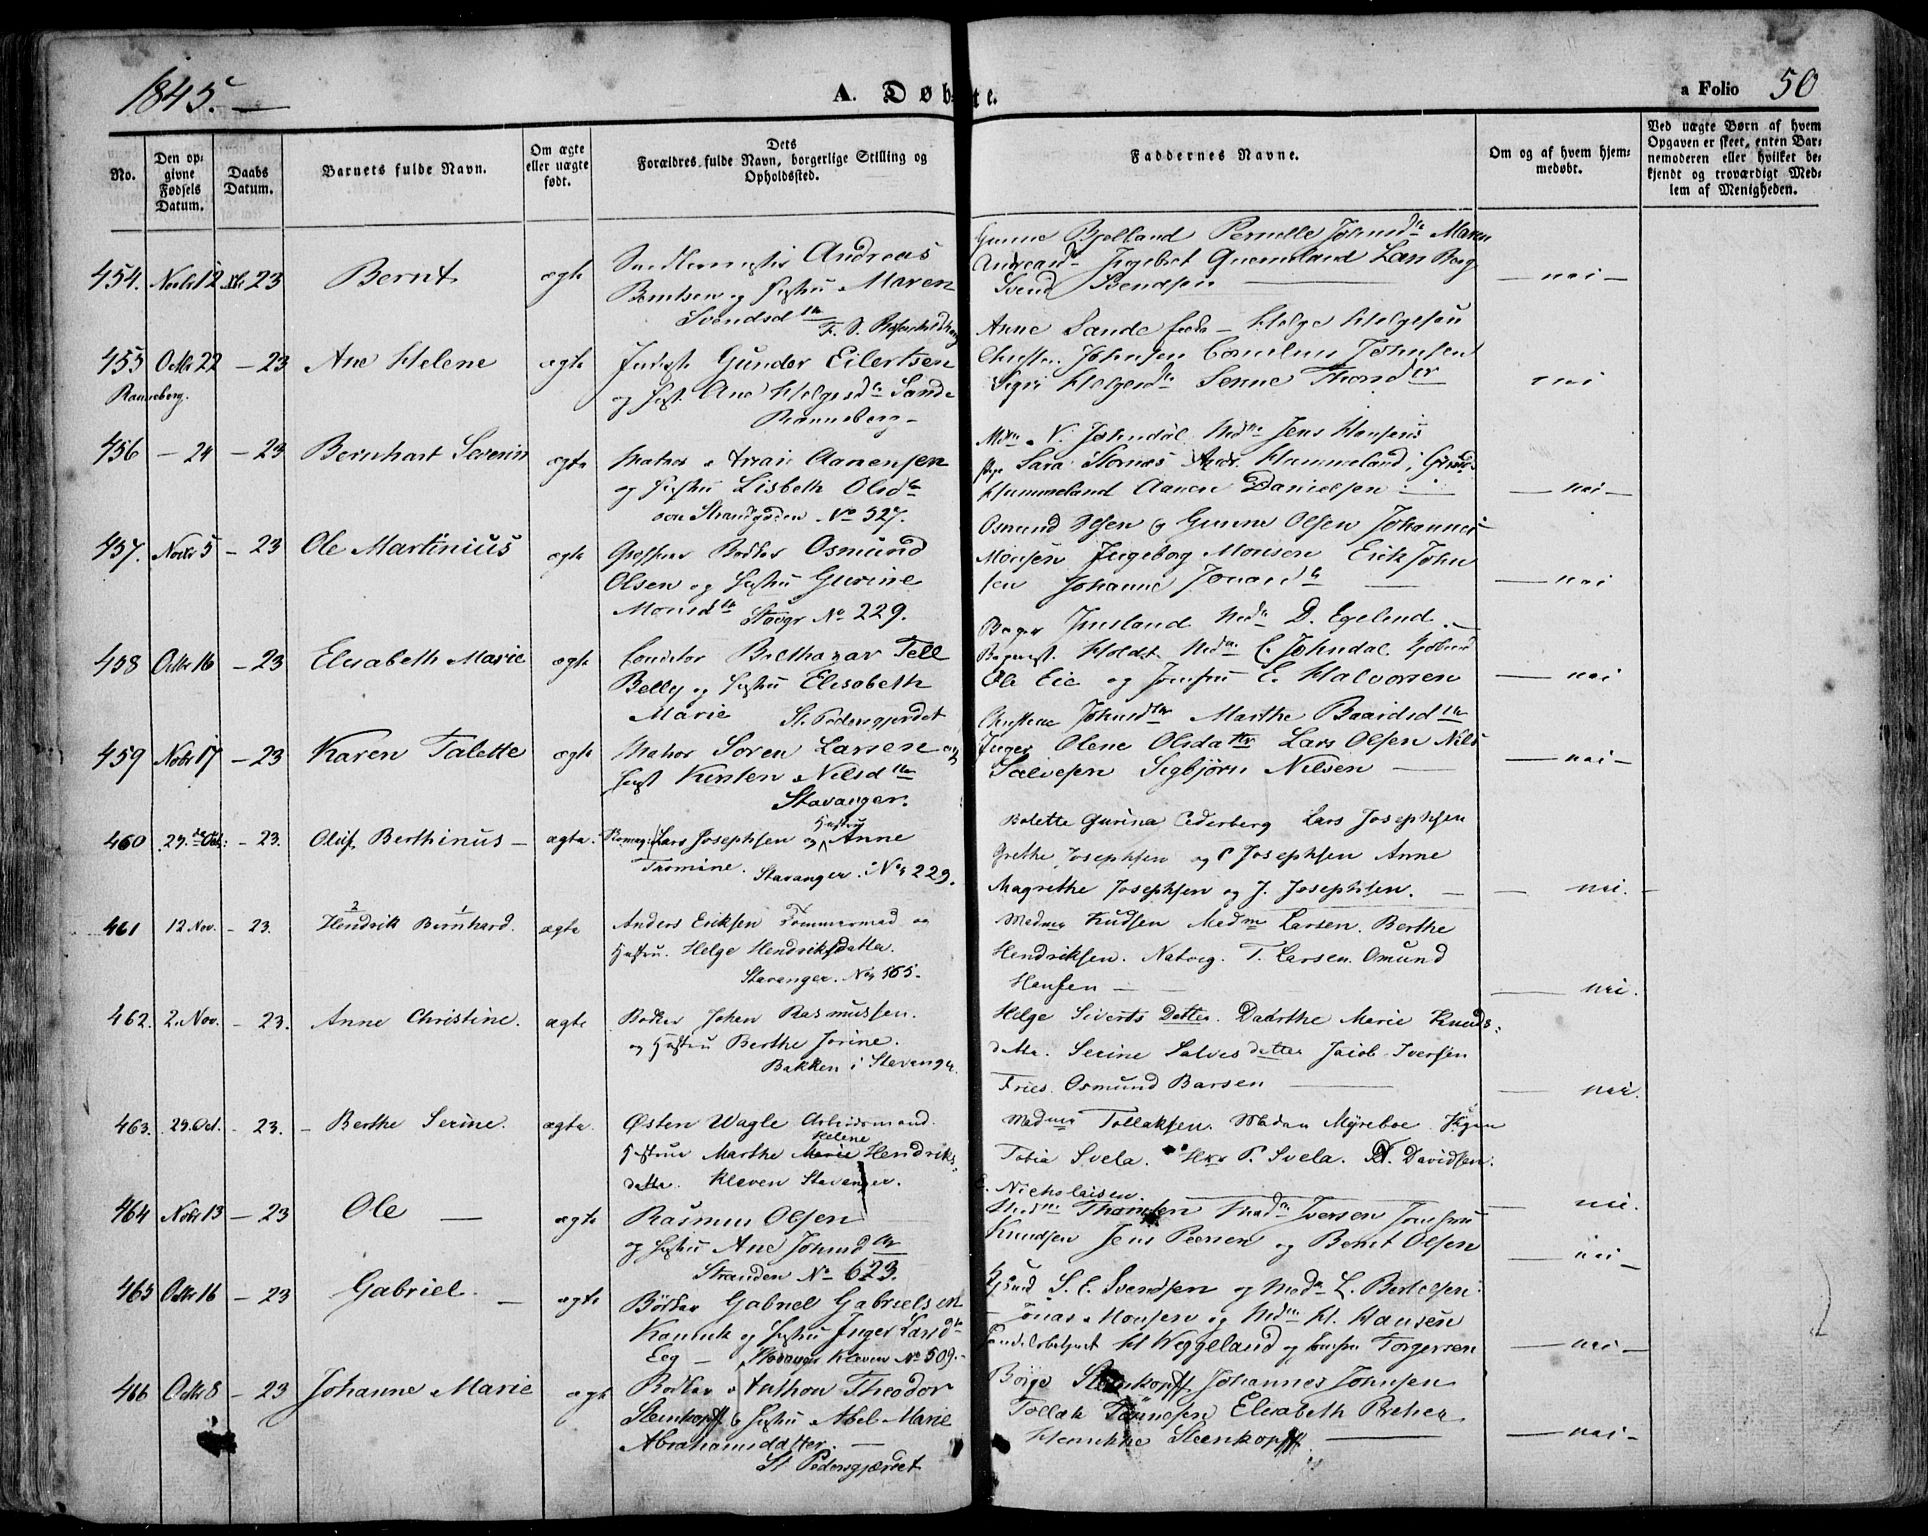 1845. —
A. Døbte.
a Folio 50
No.
Den opgivne Fødsels Datum.
Daabs Datum.
Barnets fulde Navn.
Om ægte eller uægte født.
Dets Forældres fulde Navn, borgerlige Stilling og Opholdssted.
Faddernes Navne.
Om og af hvem hjemmedøbt.
Ved uægte Børn af hvem Opgaven er skeet, enten Barnemoderen eller hvilket bekjendt og troværdigt Medlem af Menigheden.
454. Novbr 12 23 Bernt ægte
Andreas
Berntsen og Hustru Maren
Svendsdtr
Gunne Bjelland Pernille Johnsdtr Maren
Svend Bendsen —
— nei —
455 Octbr 22 — 23 Ane Helene ægte
Ranneberg.
Gunder Eilertsen
og Hust. Ane Helgesdtr Sande
Ranneberg —
Anne Sande Helge Helgesen
Johnsen Cornelius Johnsen
Siri Helgesdtr
nei
456 — 24 — 23 Bernhart Severin ægte
Matros Aanensen
og Hustru Lisbeth Olsdtr
Strandgaden No 527.
Mdm V. Johndal Mdm Jens Hansens
Sara Stornæs Andr. Hummeland
Hummeland Aanen Danielsen
— nei —
457. Novbr 5 — 23 Ole Martinius ægte
Bødker Osmund
Olsen og Hustru Gurine
Monsdtr Stavgr No 229.
Osmund Olsen og Gunne Olsen Johannes
Monsen Ingeborg Monsen Erik John
sen Johanne Jonasdtr —
— nei
458 Octbr 16 — 23 Elisabeth Marie ægte
Balthazar Tell
Belly og Hustru Elisabeth
Marie St. Pedersgjerdet
Bager Jusland Mdm D. Egelund. —
Holdt Mdm C. Johndal
Ole Eie og Jomfru E. Halvorsen
— nei
459 Nobr 17 — 23 Karen Talette ægte
Matros Soren Larsen og
Hust Kirsten Nilsdtr
Stavanger.
Johnsdtr Marthe Baardsdtr
Inger Olene Olsdatter Lars Olsen Nils
Salvesen Sigbjørn Nilsen —
— nei —
460 29. de Oct: — 23. Oluf Berthinus — ægte.
Lars Josephsen og Hustru Anne
Tarmine. Stavanger. No 229.
Bolette Gurina Cederberg Lars Josephsen
Grethe Josephsen og P Josephsen Anne
Magrethe Josephsen og J. Josephsen. —
— nei. —
461 12 Nov. — 23. Hendrik Bernhard. ægte
2 1
Anders Eriksen Tømmermad og
Hustru. Helge Hendriksdatter.
Stavanger. No 565.
Madme Kudsen Medm Larsen. Berthe
Hendriksen. Natvig. T. Larsen. Omund
Hansen —
— nei.
462. 2. Nov. — 23. Anne Christine. ægte
Bødker Johan Rasmussen.
og Hustru Berthe Jorine.
Bakken i Stavanger.
Helge Siverts Detter. Daarthe Marie Knuds-
datter. Serine Salvesdetter Jacob. Iversen
Fries. Osmund Barsen —
— nei.
463. 29. Oct. — 23. — Berthe Serine. ægte.
Østen Wagle Arbeidsmand.
Hustrue Marthe Marie Helene Hendriks-
datter. Kleven Stavanger.
Madme Tollaksen. Madam Myreboe.
Tobia Svela. P. Svela. N. Davidsen.
E. Nicholaisen.
— nei.
464 Nobr 13 — 23 Ole — ægte
Rasmus Olsen
og Hustru Ane Johnsdtr
Stranden No 623.
Madm Thomsen Madm Iversen Jomfru
Knudsen Jens Peersen og Bernt Olsen
— nei —
465 Octbr 16 — 23 Gabriel. — ægte
Bødker Gabriel Gabrielsen
Kannik og Hustru Inger Larsdtr
Eeg — Stavanger Kleven No 509.
S. E. Svendsen og Mdm L. Bertelsen
Jonas Monsen og Mdm H. Hansen
Handelsbetjent H Weggeland og Jomfru Torgersen
— nei —
466 Octbr 8 — 23 Johanne Marie ægte
Bødker Anthon Theodor
Steenkopff og Hustru Abel Marie
Abrahamsdatter. —
St Pedersgjerdet
Børge Steenkopff Johannes Johnsen
Tollak Tønnesen Elisabeth Breher
Henrikke Steenkopff —
— nei —